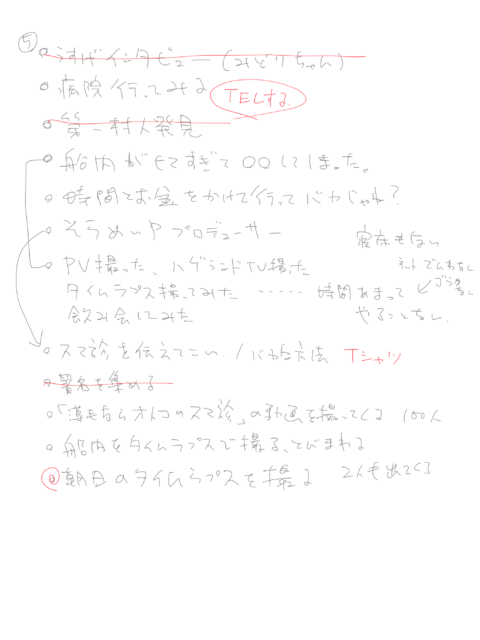 ⑤
○ うすげインタビュー(みどりちゃん)
○ 病院行ってみる
TELする
○ 第一村人発見
○ 船内がヒマすぎて○○してしまった。
○ 時間とお金をかけて行ってバカじゃね?
○ そうめいP プロデューサー
寝床もない
PV撮った、ハゲランドTV撮った
ネットつながらない
タイムラプス撮ってみた …… 時間あまって
飲み会してみた やることない
○ スマ診を伝えてこい/バカな方法 Tシャツ
○ 署名を集める
○「薄毛ならオトコのスマ診」の動画を撮ってくる 100人
○ 船内をタイムラプスで撮る、とびまわる
○ 朝日のタイムラプスを撮る 2人も出てくる